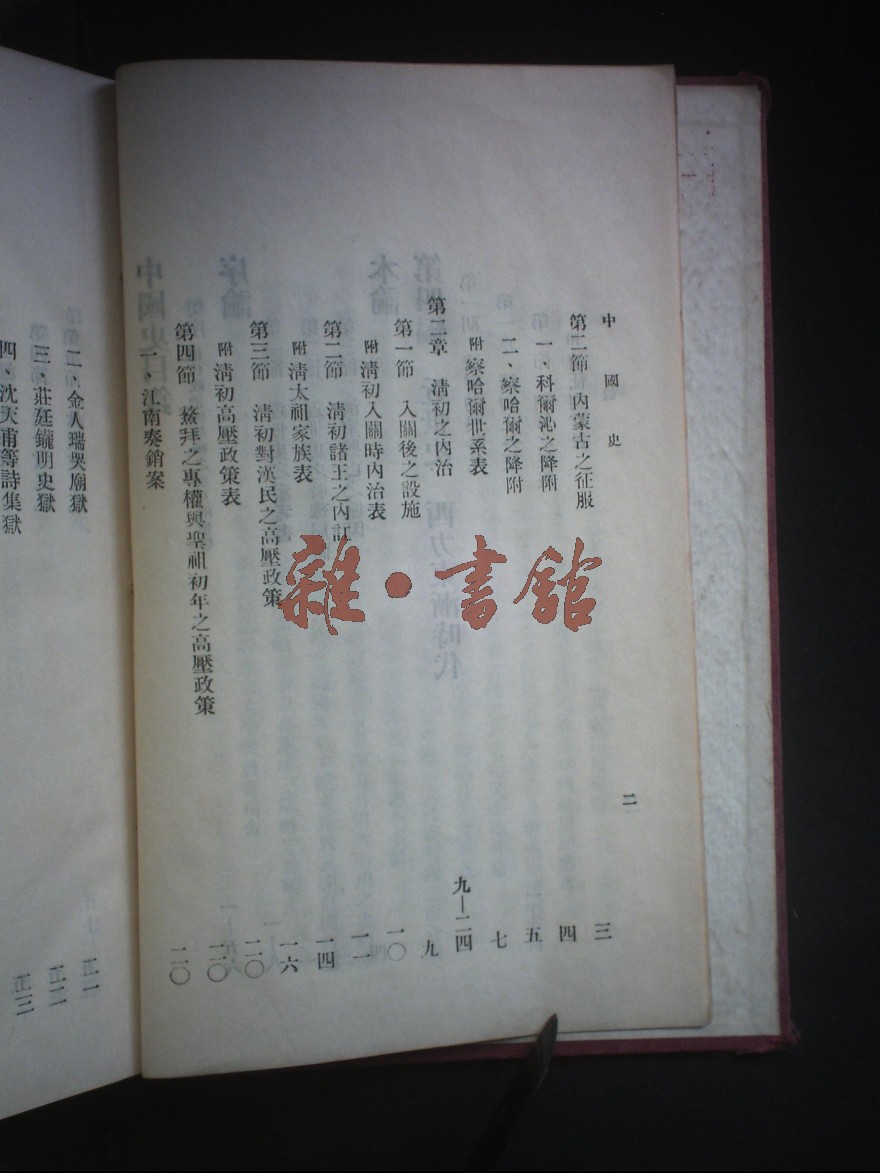 中國史 二
第二節 內蒙古之征服 三
一、科爾沁之降附 四
二、察哈爾之降附 五
附 察哈爾世系表 七
第二章 清初之內治 九—二四
第一節 入關後之設施 九
附 清初入關時內治表 一〇
第二節 清初諸王之內訌 一一
附 清太祖家族表 一四
第三節 清初對漢民之高壓政策 一六
附 清初高壓政策表 二〇
第四節 鰲拜之專權與聖祖初年之高壓政策 二〇
一、江南奏銷案 二〇
二、金人瑞哭廟獄 二一
三、莊廷鑨明史獄 二二
四、沈天甫等詩集獄 二三
雜·書館